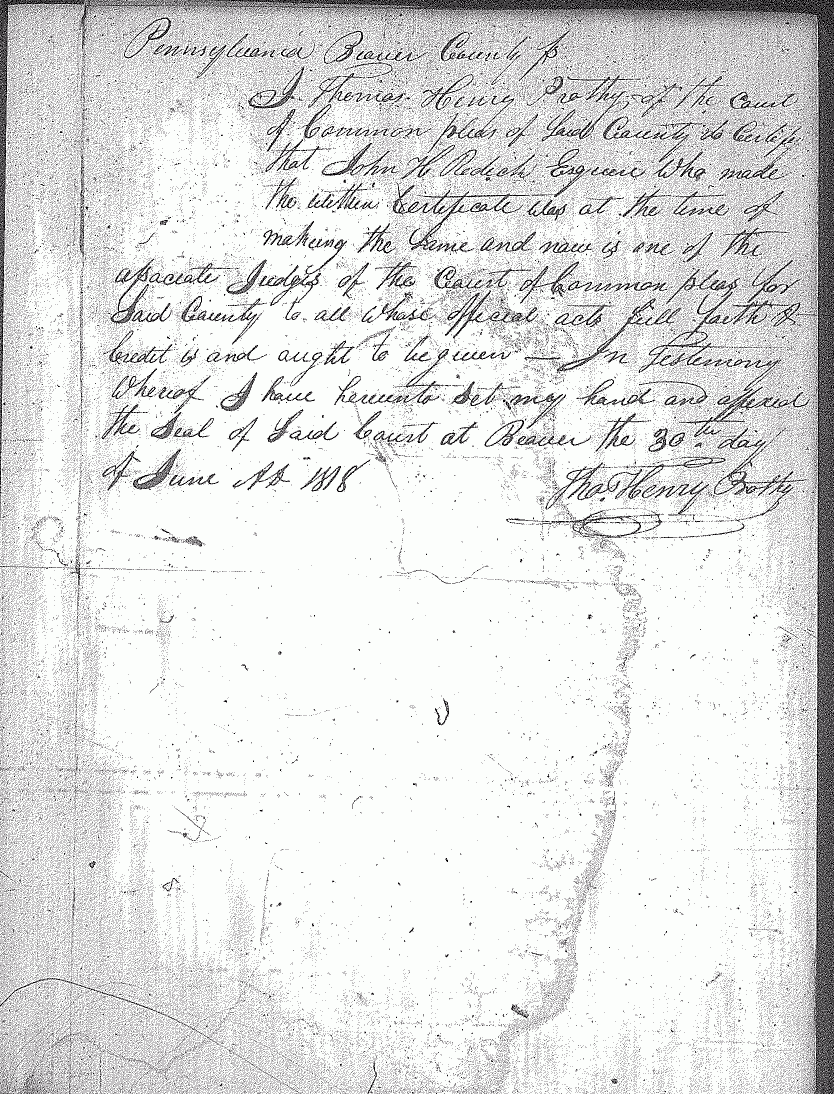 Pennsylvania Beaver County ss
I Thomas Henry Prothy, of the Court
of Common pleas of Said County do Certify
that John H. Redick Esquire who made
the within Certificate was at the time of
making the Same and now is one of the
associate Judges of the Court of Common pleas for
Said County to all whose official acts full faith &
Credit is and aught to be given — In Testimony
Whereof I have hereunto Set my hand and affixed
the Seal of Said Court at Beaver the 30th day
of June AD 1818
Tho. Henry Prothy